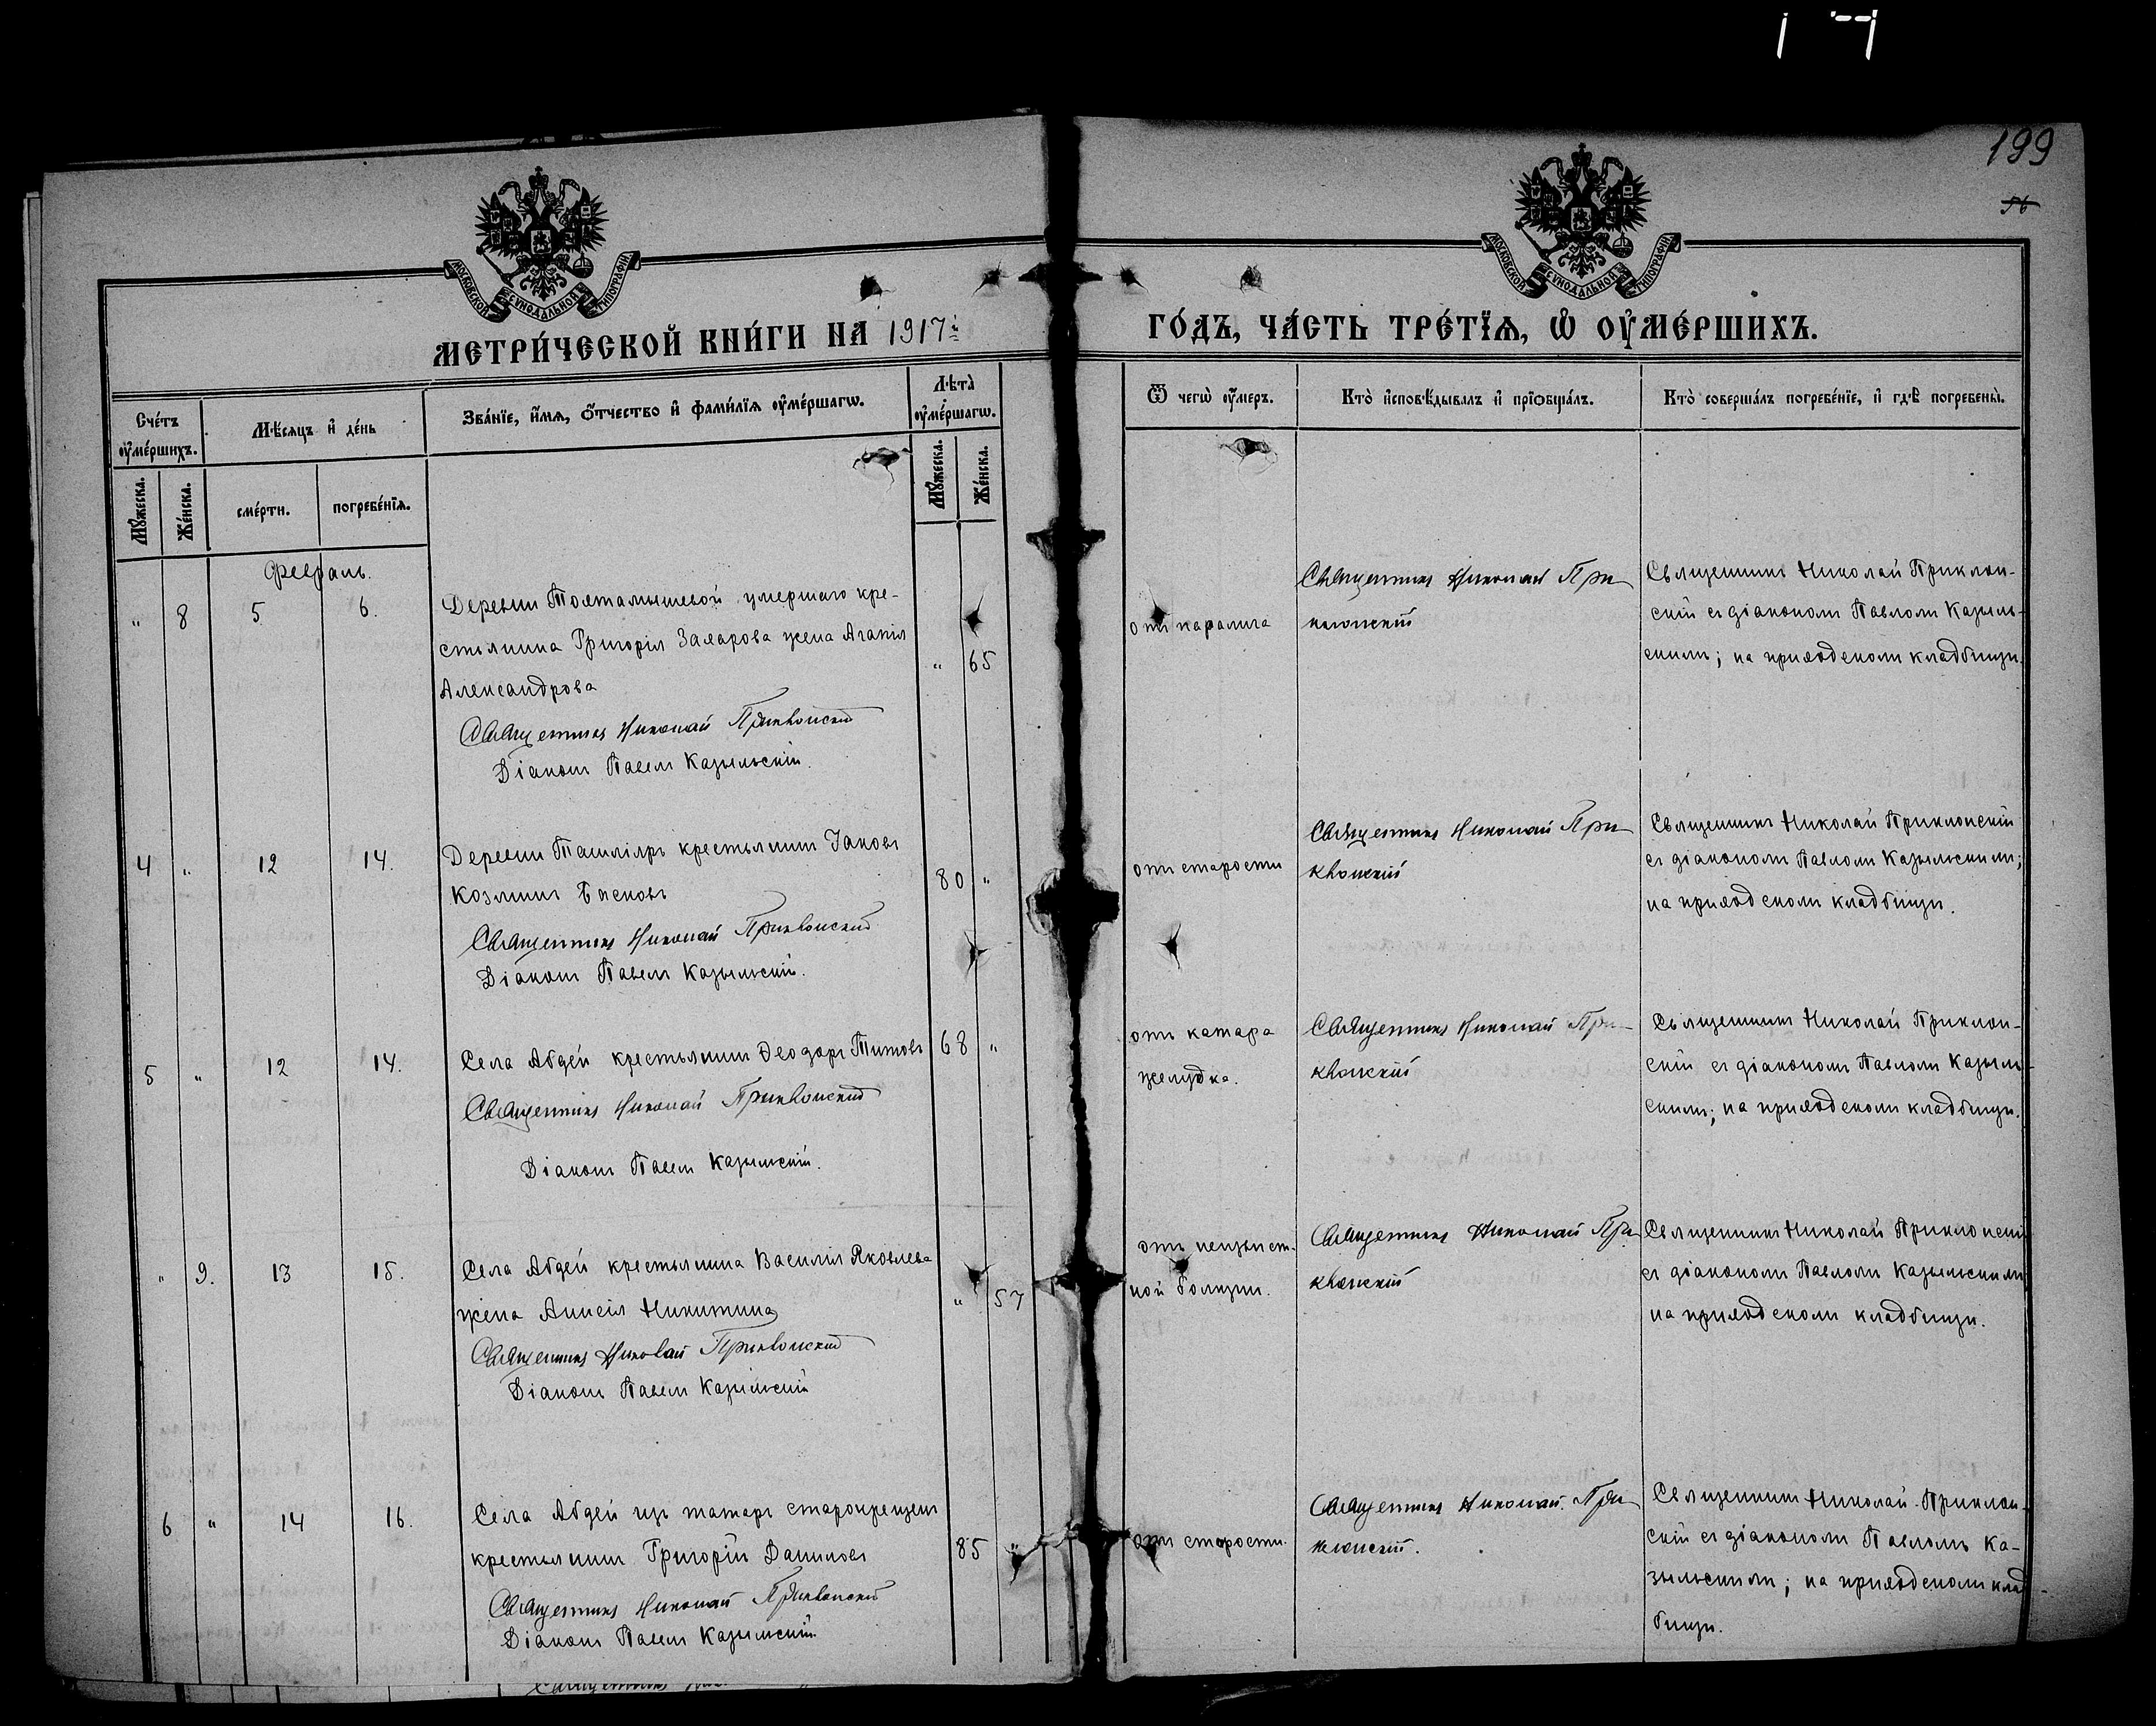 199
56
МОСКОВСКОЙ СУНОДАЛЬНОЙ ТИПОГРАФІИ
МОСКОВСКОЙ СУНОДАЛЬНОЙ ТИПОГРАФІИ
МЕТРИ́ЧЕСКОЙ КНИ́ГИ НА 1917й
ГО́ДЪ, ЧА́СТЬ ТРЕ́ТІѦ, Ѡ҆ ОУ҆МЕ́РШИХЪ.
Сче́тъ оу҆ме́ршихъ.
Мѣ́сяцъ и҆ де́нь
Зва́нїе, и҆́мѧ, ѻ҆́тчество и҆ фами́лїѧ оу҆ме́ршагѡ.
Лѣта̀ оу҆ме́ршагѡ.
Ѿ чегѡ̀ оу҆́меръ.
Кто̀ и҆сповѣ́дывалъ и҆ прїѻбща́лъ.
Кто̀ соверша́лъ погребе́нїе, и҆ гдѣ̀ погребены̀.
Мꙋ́жеска.
Же́нска.
сме́рти.
погребе́нїѧ.
Мꙋ́жеска.
Же́нска.
Февраль.
" 8 5 6.
Деревни Тохтамышевой умершаго кре-
стьянина Григорія Захарова жена Агапія
Александрова
" 65
Священникъ Николай Приклонскій
Діаконъ Павелъ Казыльскій.
отъ паралича
Священникъ Николай При-
клонскій
Священникъ Николай Приклон-
скій съ діакономъ Павломъ Казыль-
скимъ; на приходскомъ кладбищѣ.
4 " 12 14.
Деревни Ташліяръ крестьянинъ Іаковъ
Козминъ
80 "
Священникъ Николай Приклонскій
Діаконъ Павелъ Казыльскій.
отъ старости
Священникъ Николай При-
клонскій
Священникъ Николай Приклонскій
съ діакономъ Павломъ Казыльскимъ;
на приходскомъ кладбищѣ.
5 " 12 14.
Села Абдей крестьянинъ Ѳеодоръ Титовъ
68 "
Священникъ Николай Приклонскій
Діаконъ Павелъ Казыльскій.
отъ катара
желудка.
Священникъ Николай При-
клонскій
Священникъ Николай Приклон-
скій съ діакономъ Павломъ Казыль-
скимъ; на приходскомъ кладбищѣ.
" 9. 13 15.
Села Абдей крестьянина Василія Яковлева
жена Анисія Никитина
" 57
Священникъ Николай Приклонскій
Діаконъ Павелъ Казыльскій
отъ неизвѣст-
ной болѣзни.
Священникъ Николай При-
клонскій
Священникъ Николай Приклонскій
съ діакономъ Павломъ Казыльскимъ
на приходскомъ кладбищѣ.
6 " 14 16.
Села Абдей изъ татаръ старокрещенъ
крестьянинъ Григорій Даниловъ
85 "
Священникъ Николай Приклонскій
Діаконъ Павелъ Казыльскій.
отъ старости.
Священникъ Николай При-
клонскій.
Священникъ Николай Приклон-
скій съ діакономъ Павломъ Ка-
зыльскимъ; на приходскомъ клад-
бищѣ.